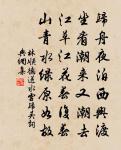 歸舟夜泊西興渡
坐看潮來又潮去
江草江花春復春
山青水綠原如故
林順德送水雲歸吳詞
與網集